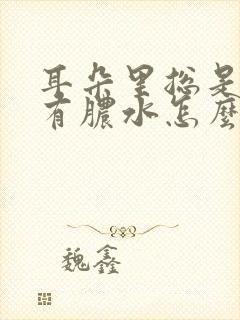 耳朵里总是
有脓水怎麼
魏鑫